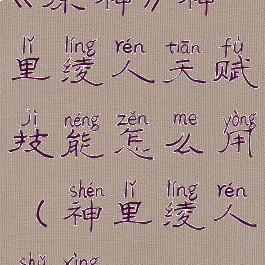 《原神》神
lǐ líng rén tiān fù
里绫人天赋
jì néng zěn me yòng
技能怎么用
shén lǐ líng rén
（神里绫人
shǔ xìng